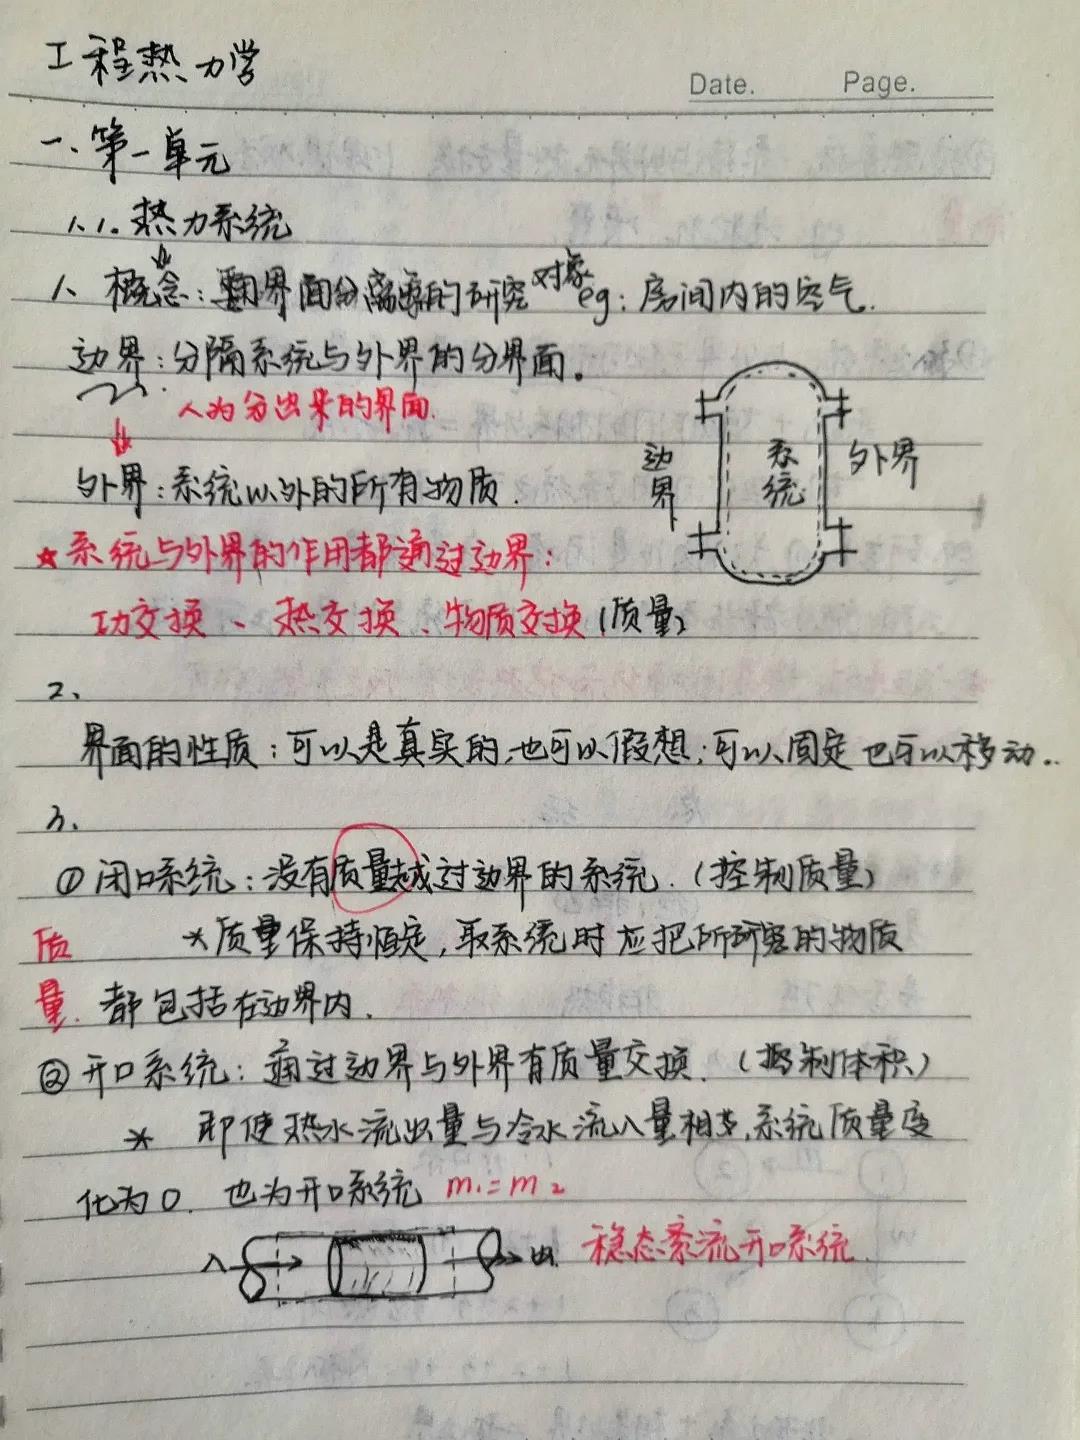 工程热力学
Date. Page.
一、第一单元
1.1. 热力系统
1、概念：用界面分离的研究对象 eg：房间内的空气.
边界：分隔系统与外界的分界面。
人为分出来的界面.
外界：系统以外的所有物质.
边界
系统
外界
★系统与外界的作用都通过边界：
功交换、热交换、物质交换(质量)
2、
界面的性质：可以是真实的,也可以假想；可以固定也可以移动..
3、
①闭口系统：没有质量越过边界的系统.（控制质量）
*质量保持恒定,取系统时应把所研究的物质
质量. 都包括在边界内.
②开口系统：通过边界与外界有质量交换.（控制体积）
* 即使热水流出量与冷水流入量相等,系统质量变
化为0. 也为开口系统 m₁=m₂
入 出 稳态 流开口系统.